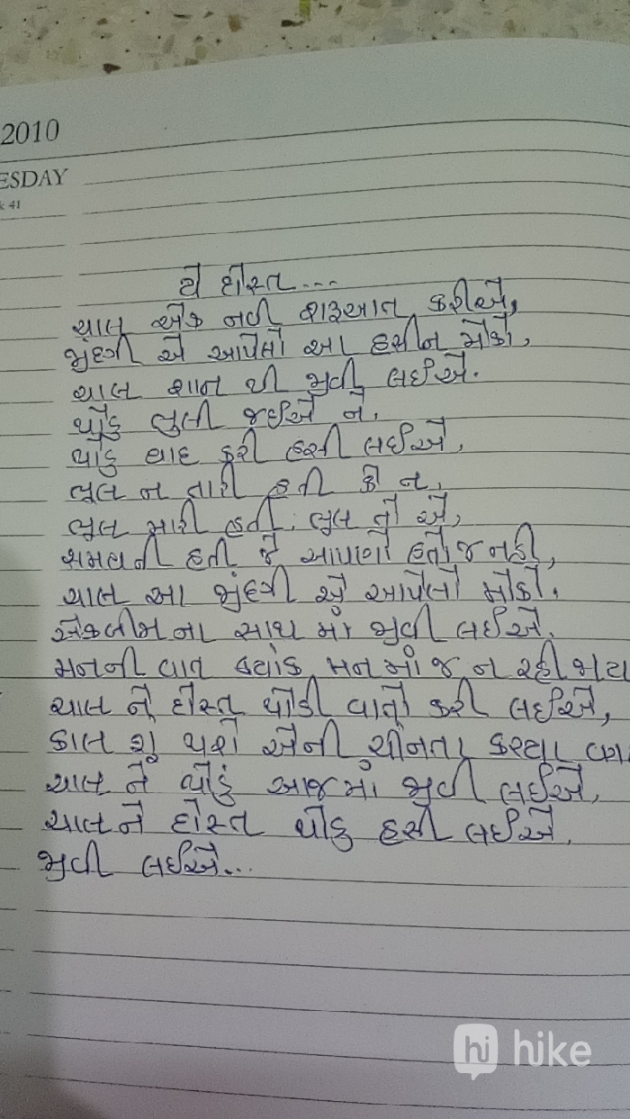 2010
ESDAY
k 41
હે દોસ્ત...
ચાલ એક નવી શરૂઆત કરીએ,
જીંદગી એ આપેલો આ હસીન મોકો,
ચાલ શાન થી જીવી લઈએ.
થોડુ ભુલી જઈએ ને,
થોડુ યાદ કરી હસી લઈએ,
ભૂલ ન તારી હતી કે ન,
ભૂલ મારી હતી, ભૂલ તો એ,
સમયની હતી જે આપણો હતો જ નહી,
ચાલ આ જીંદગી એ આપેલો મોકો,
એકબીજા ના સાથ માં જીવી લઈએ.
મનની વાત ક્યાંક મન માં જ ન રહી જાય
ચાલ ને દોસ્ત થોડી વાતો કરી લઈએ,
કાલ શુ થશે એની ચીનતા કરયા વગર
ચાલ ને થોડું આજમાં જીવી લઈએ,
ચાલને દોસ્ત થોડુ હસી લઈએ,
જીવી લઈએ...
hi hike